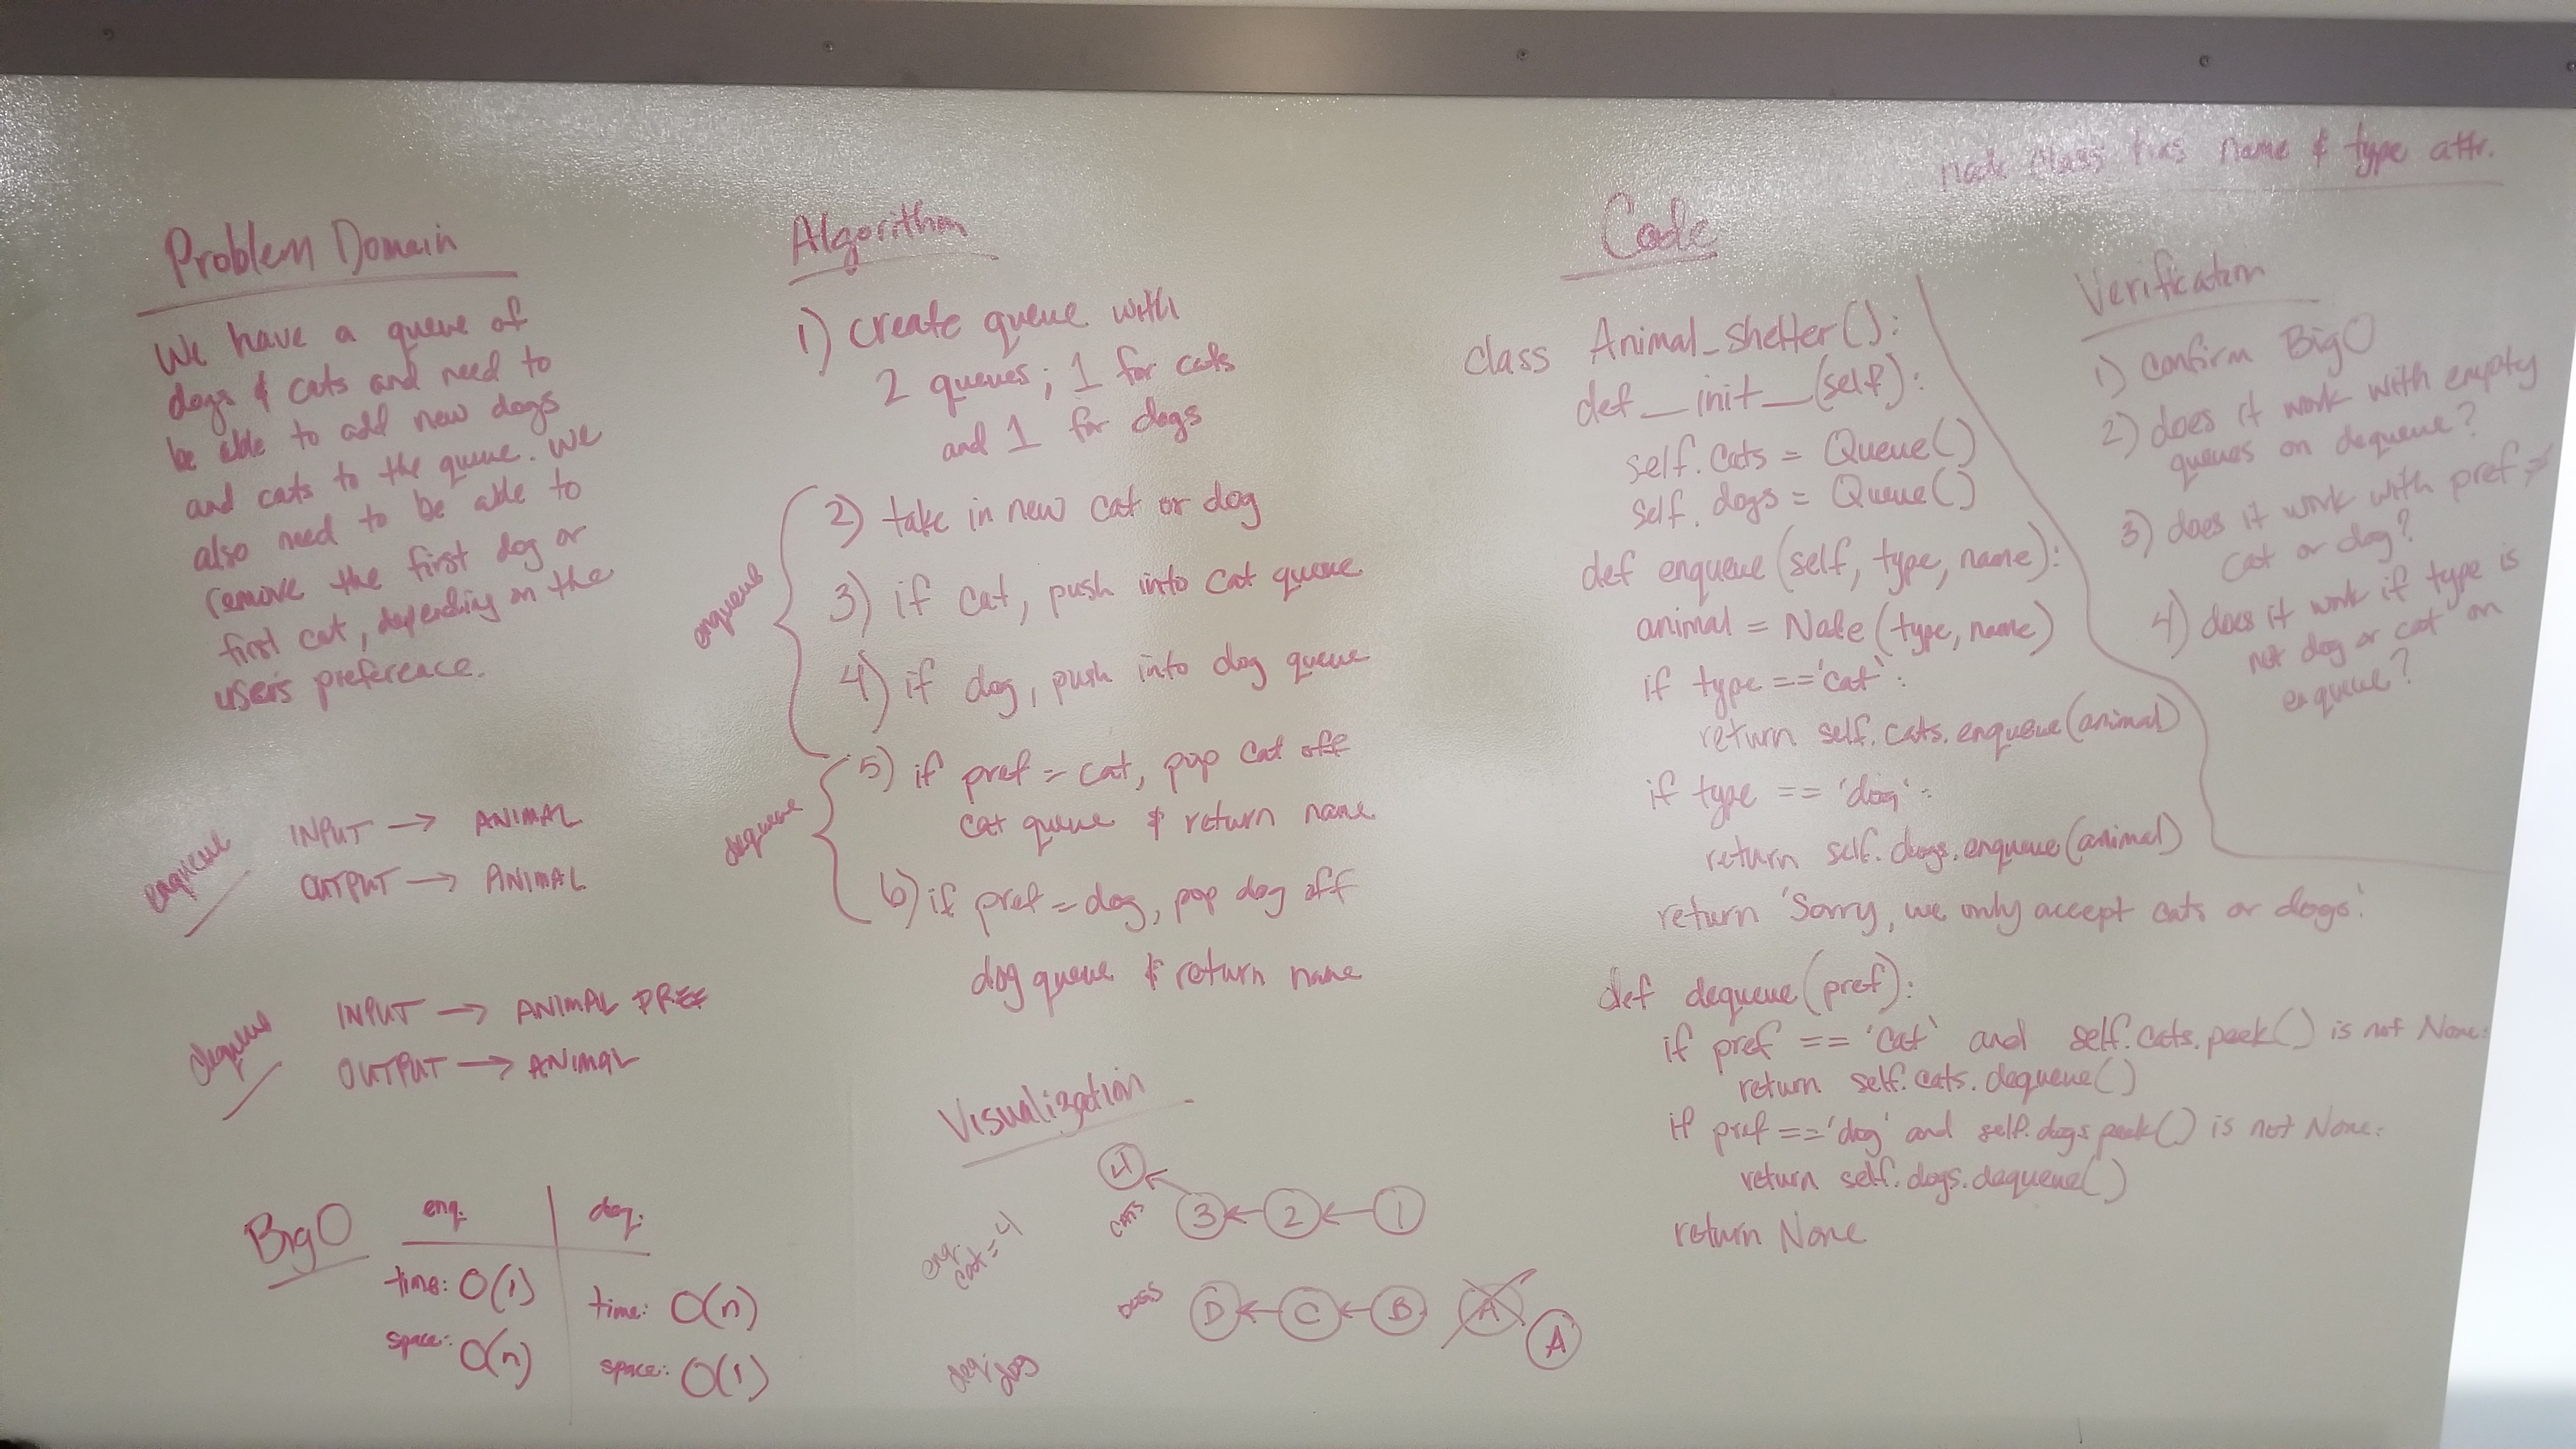 node class has name & type attr.
Problem Domain
We have a queue of
dogs & cats and need to
be able to add new dogs
and cats to the queue. We
also need to be able to
remove the first dog or
first cat, depending on the
users preference.
enqueue
INPUT → ANIMAL
OUTPUT → ANIMAL
dequeue
INPUT → ANIMAL PREF
OUTPUT → ANIMAL
Big O
enq. deq.
time: O(1) time: O(n)
space: O(n) space: O(1)
Algorithm
1) create queue with
2 queues; 1 for cats
and 1 for dogs
enqueue
2) take in new cat or dog
3) if cat, push into cat queue
4) if dog, push into dog queue
dequeue
5) if pref = cat, pop cat off
cat queue & return name
6) if pref = dog, pop dog off
dog queue & return name
Visualization
enq.
cat = 4
CATS
4
3 ← 2 ← 1
DOGS
D ← C ← B A
A
deq: dog
Code
class Animal_Shelter():
def __init__(self):
self.cats = Queue()
self.dogs = Queue()
def enqueue(self, type, name):
animal = Node(type, name)
if type == 'cat':
return self.cats.enqueue(animal)
if type == 'dog':
return self.dogs.enqueue(animal)
return 'Sorry, we only accept cats or dogs.'
def dequeue(pref):
if pref == 'cat' and self.cats.peek() is not None:
return self.cats.dequeue()
if pref == 'dog' and self.dogs.peek() is not None:
return self.dogs.dequeue()
return None
Verification
1) confirm Big O
2) does it work with empty
queues on dequeue?
3) does it work with pref =
cat or dog?
4) does it work if type is
not dog or cat on
enqueue?